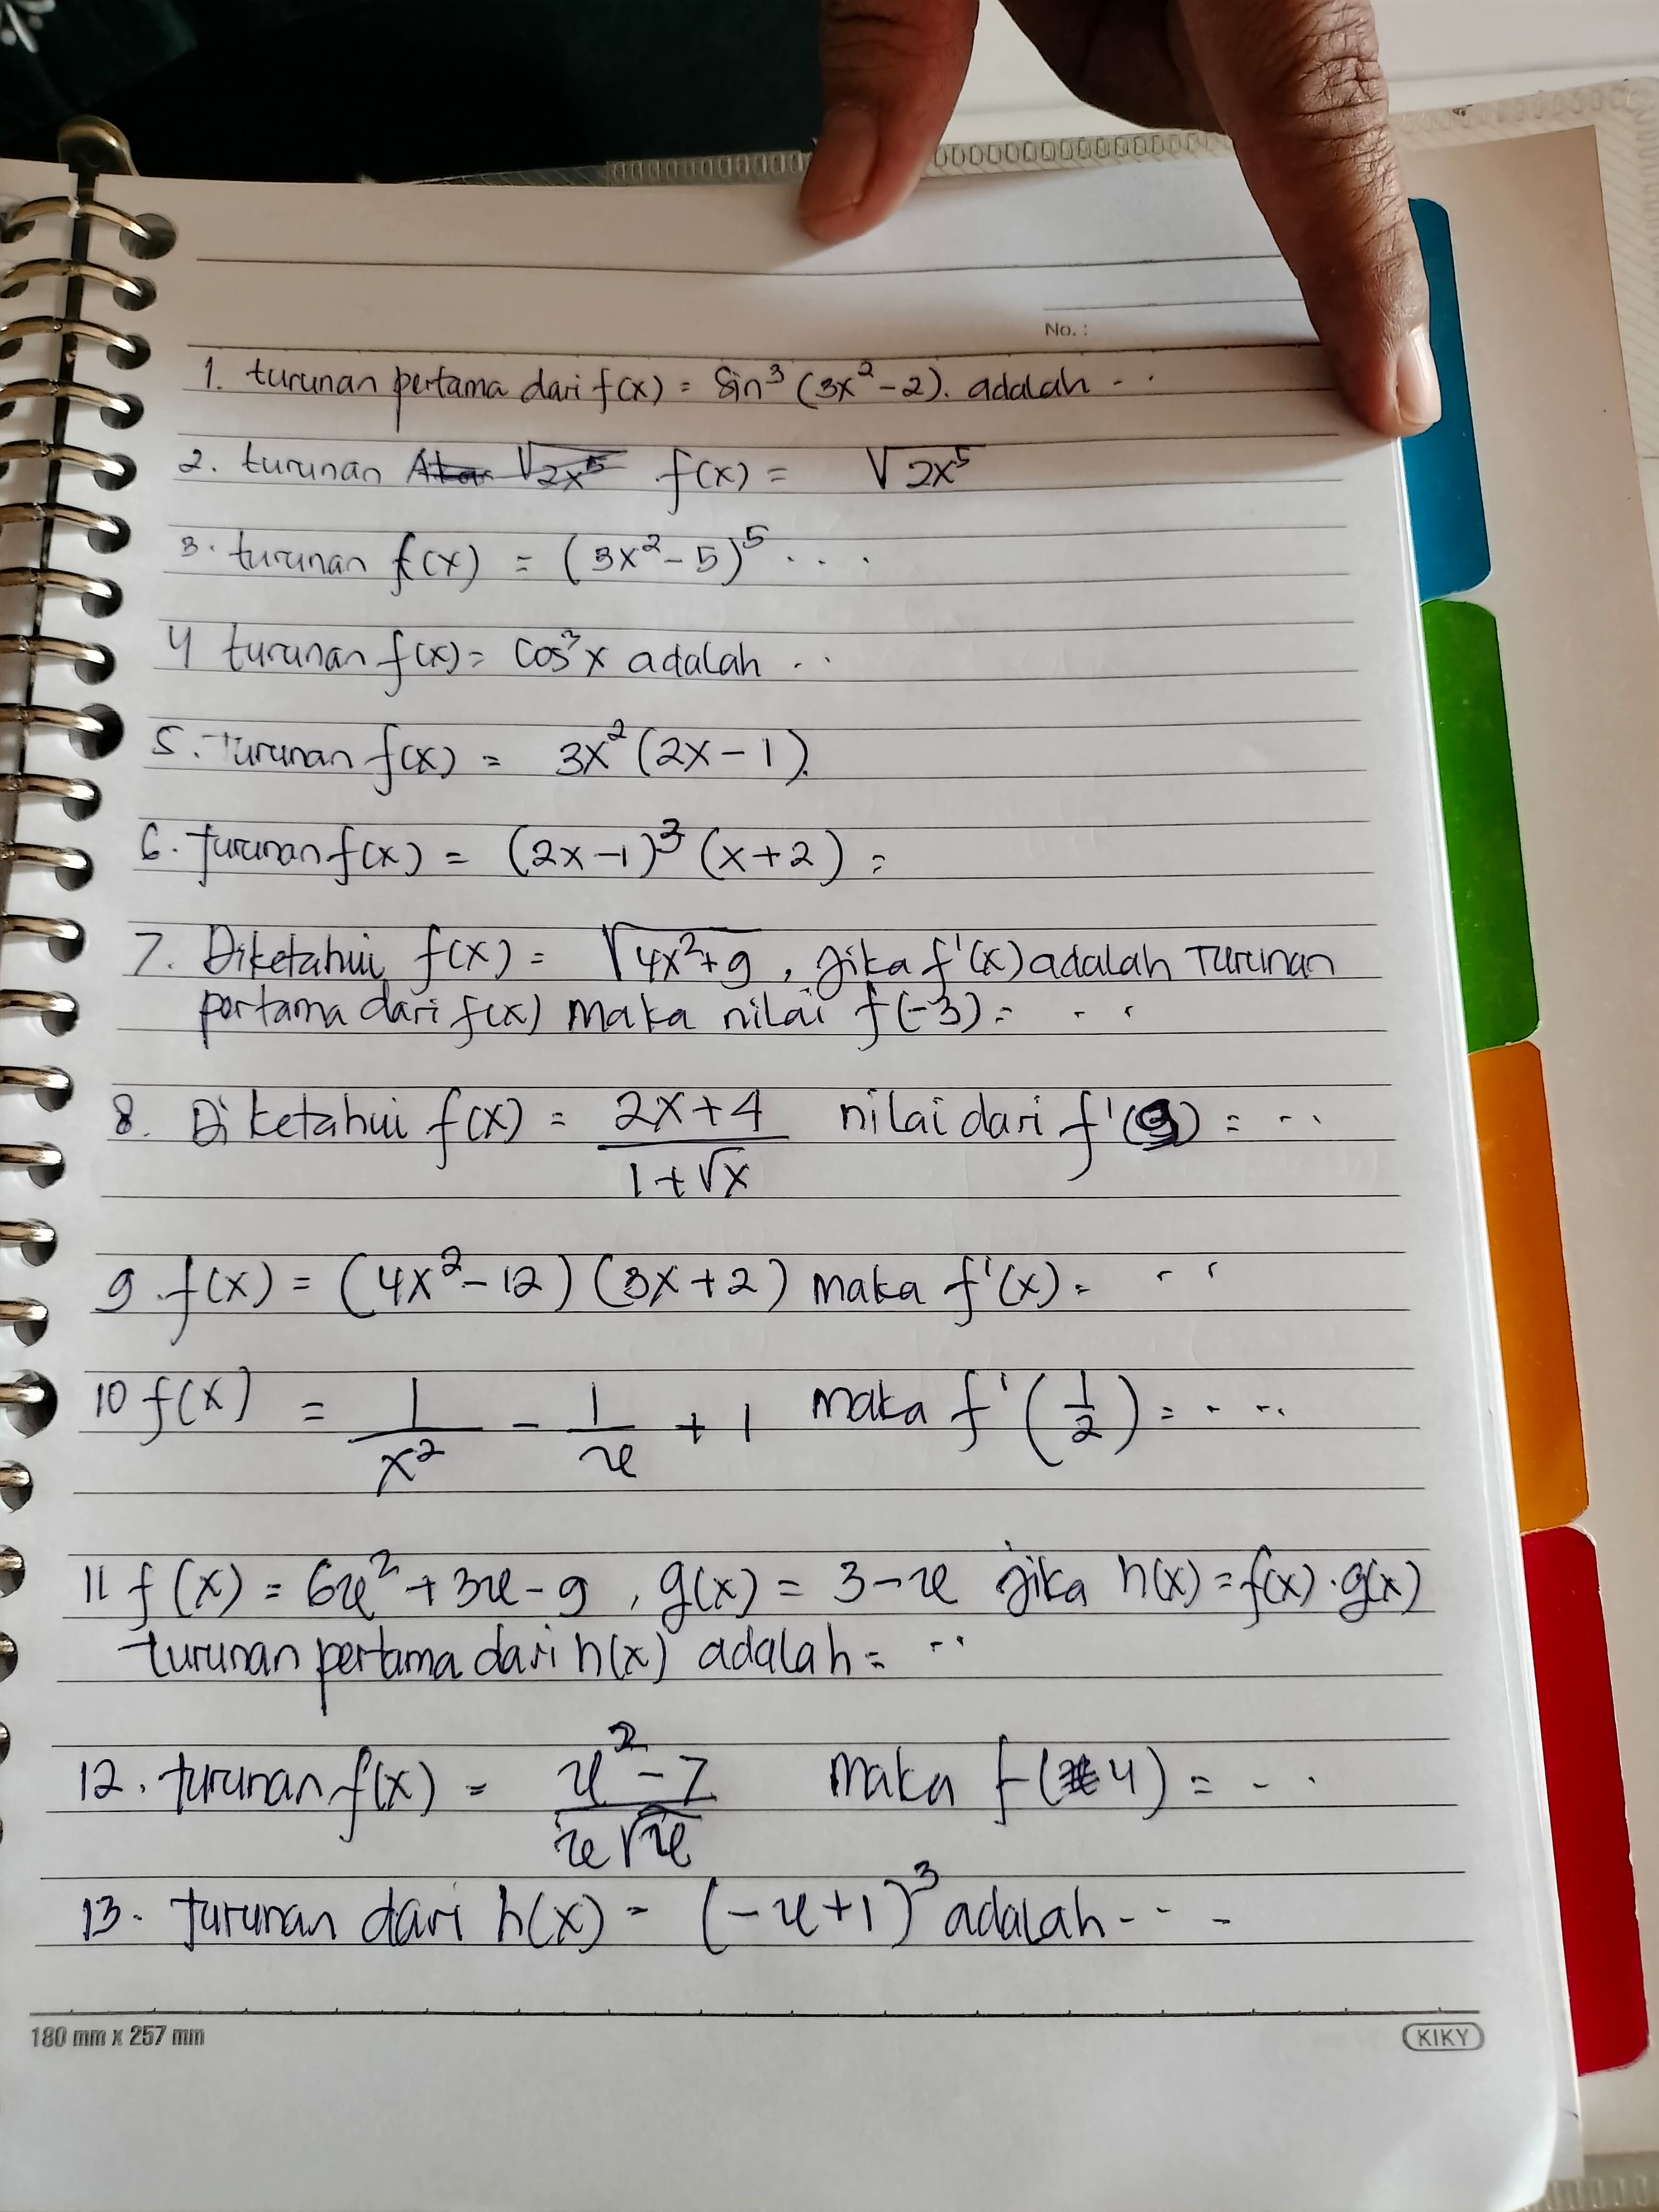 No. :
1. turunan pertama dari f(x) = sin³ (3x² - 2). adalah ...
2. turunan √2x⁵ f(x) = √2x⁵
3. turunan f(x) = (3x² - 5)⁵ ...
4 turunan f(x) = cos³x adalah ..
5. Turunan f(x) = 3x² (2x - 1).
6. Turunan f(x) = (2x - 1)³ (x + 2) =
7. Diketahui f(x) = √4x² + 9 , jika f'(x) adalah Turunan
pertama dari f(x) maka nilai f(-3) = ..
8. Diketahui f(x) = 2x + 4 / 1 + √x nilai dari f'(9) = ...
9. f(x) = (4x² - 12) (3x + 2) maka f'(x) = ..
10 f(x) = 1/x² - 1/x + 1 maka f' (1/2) = ...
11 f(x) = 6x² + 3x - 9 , g(x) = 3 - x jika h(x) = f(x) . g(x)
turunan pertama dari h(x) adalah = ...
12. turunan f(x) = x² - 7 / x√x maka f(4) = ...
13. Turunan dari h(x) = (-x + 1)³ adalah ...
180 mm x 257 mm
KIKY